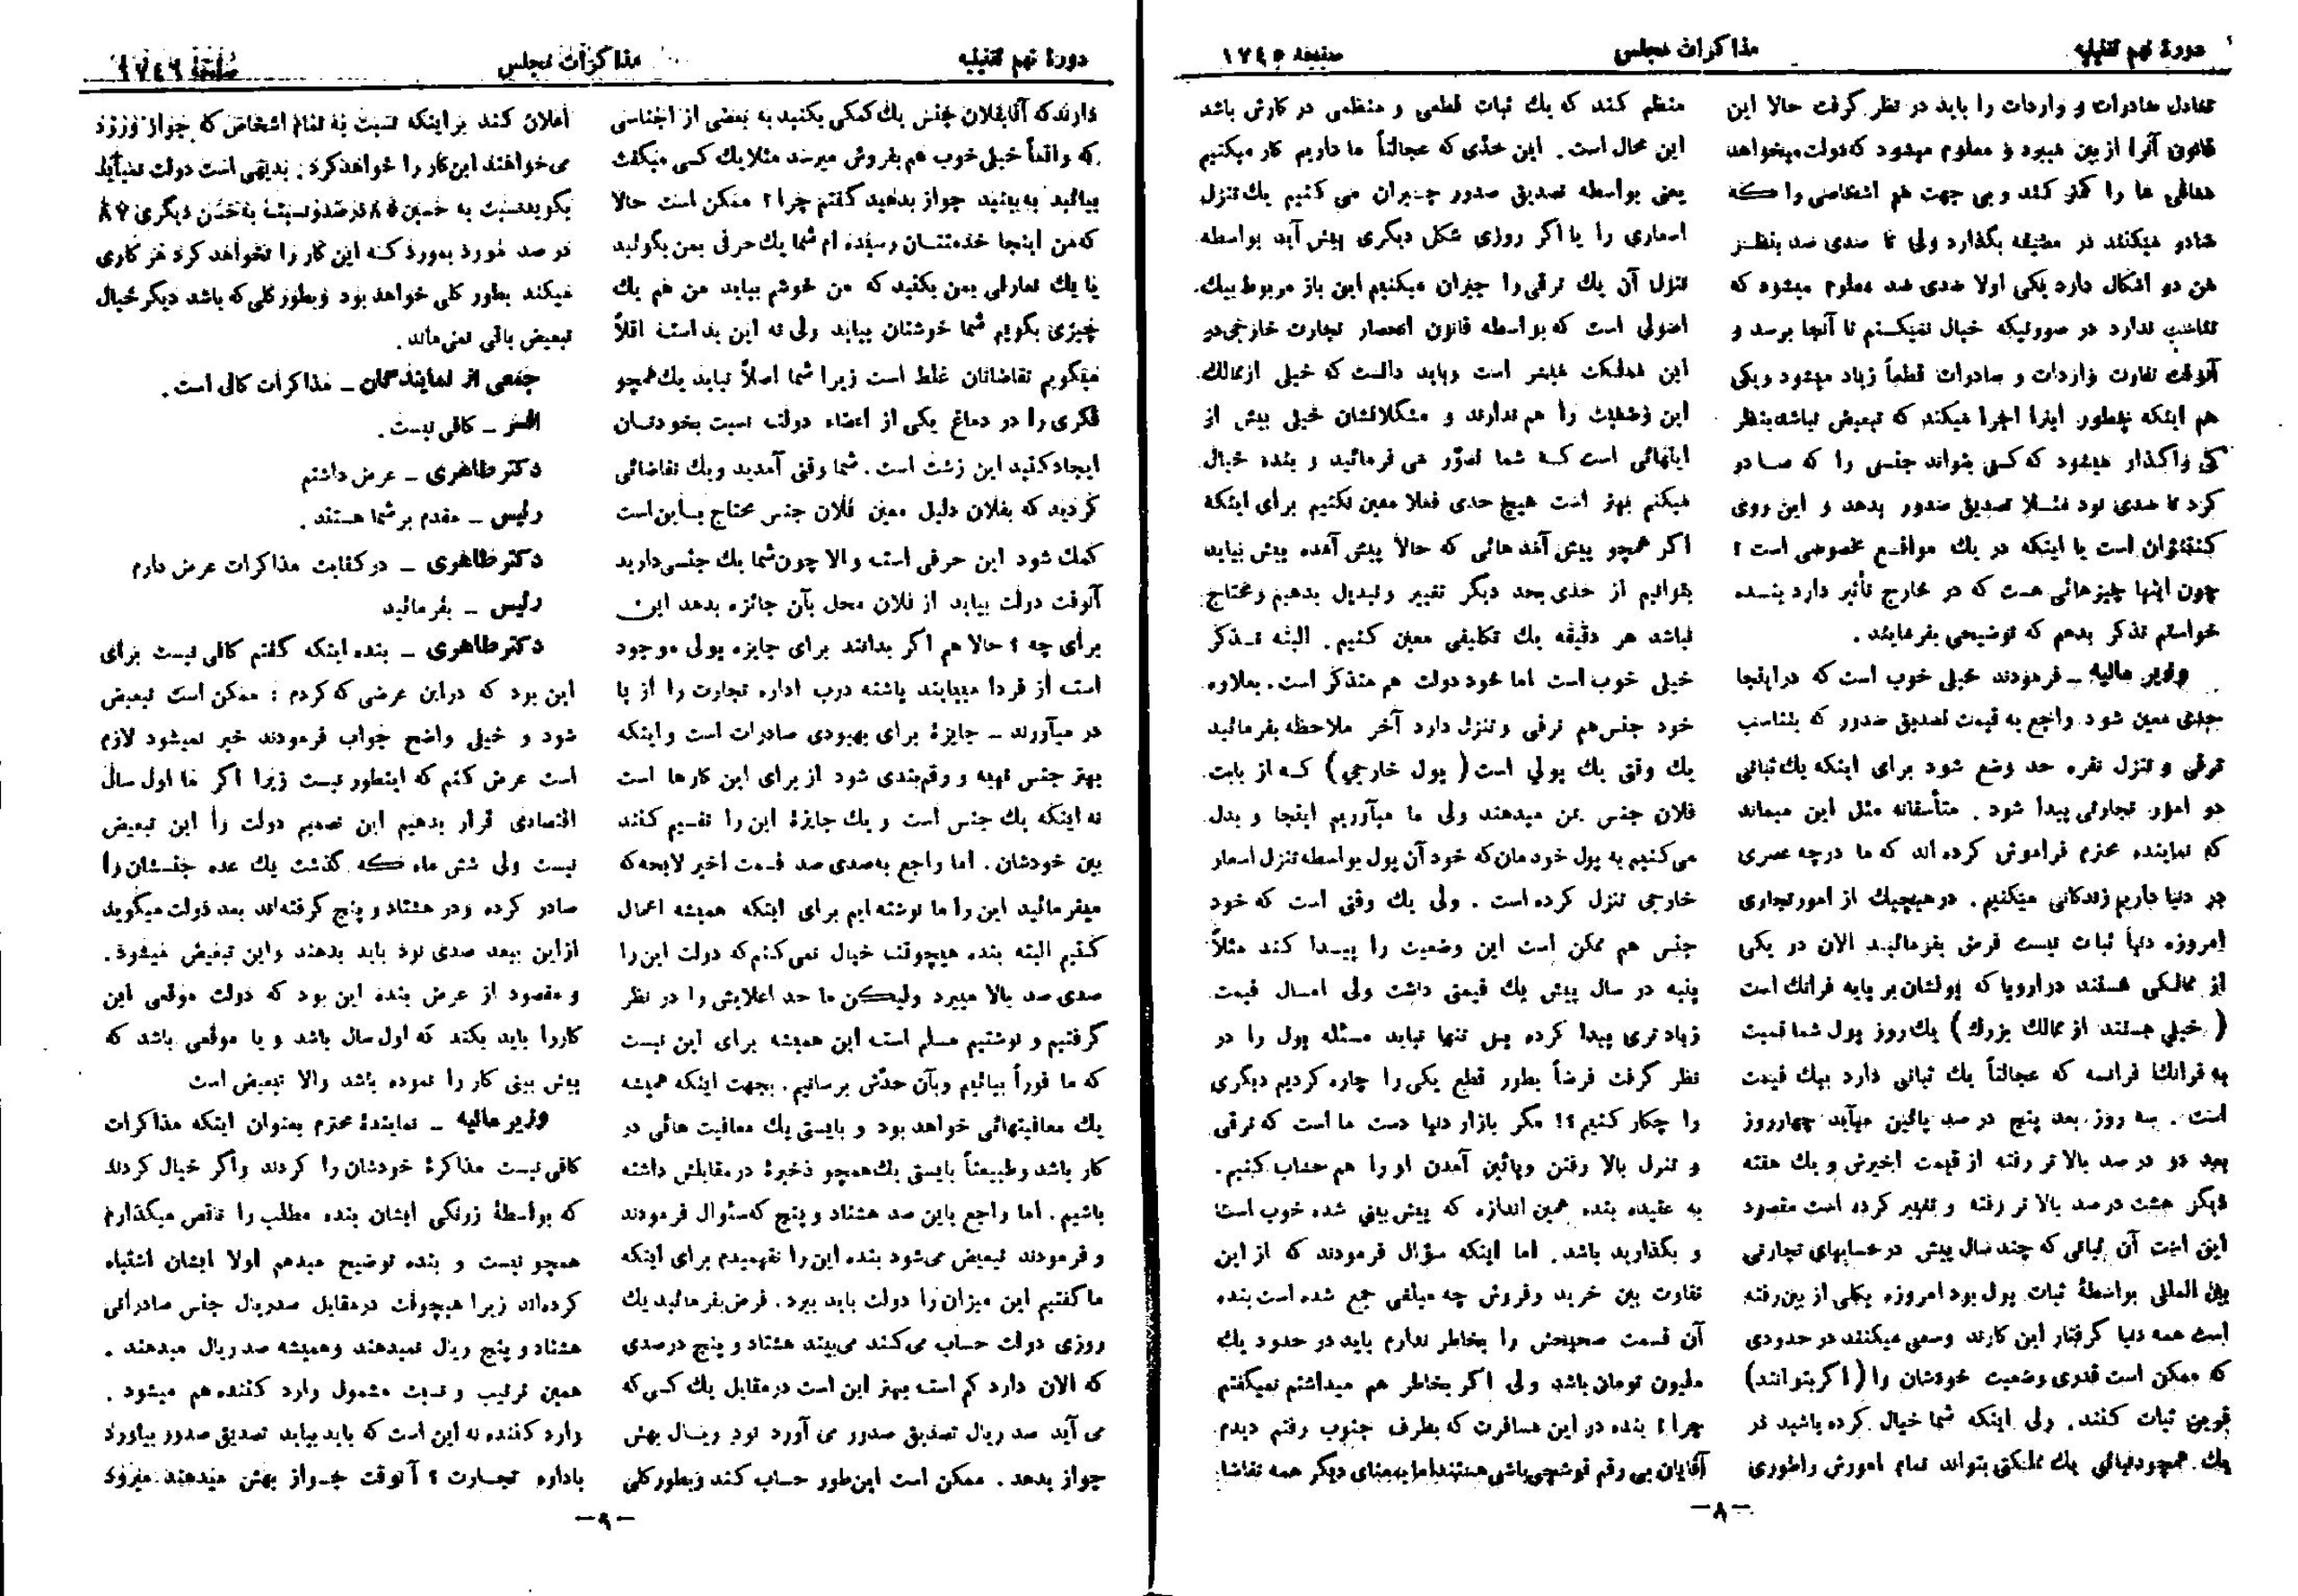 دورۀ نهم تقنینیه
مذاکرات مجلس
صفحه ۱۷۴۵
تعادل صادرات و واردات را باید در نظر گرفت حالا این
قانون آنرا از بین میبرد و معلوم میشود که دولت میخواهد
معافی ها را کمتر کند و بی جهت هم اشخاصی را که
صادر میکنند در مضیقه بگذارد ولی تا صدی صد بنظر
من دو اشکال دارد یکی اولا صدی صد معلوم میشود که
تناسب ندارد در صورتیکه خیال نمیکنم تا آنجا برسد و
آنوقت تفاوت واردات و صادرات قطعاً زیاد میشود و یکی
هم اینکه چطور اینرا اجرا میکند که تبعیض نباشد بنظر
کی واگذار میشود که کسی بتواند جنسی را که صادر
کرد تا صدی نود مثلا تصدیق صدور بدهد و این روی
کنتنژان است یا اینکه در یك مواقع مخصوصی است ؟
چون اینها چیزهائی هست که در خارج تأثیر دارد بنده
خواستم تذکر بدهم که توضیحی بفرمایند .
وزیر مالیه ـ فرمودند خیلی خوب است که در اینجا
حدی معین شود راجع به قیمت تصدیق صدور که بتناسب
ترقی و تنزل نقره حد وضع شود برای اینکه یك ثباتی
در امور تجارتی پیدا شود . متأسفانه مثل این میماند
که نماینده محترم فراموش کرده اند که ما درچه عصری
در دنیا داریم زندکانی میکنیم . در هیچیك از امور تجاری
امروزه دنیا ثبات نیست فرض بفرمائید الان در یکی
از ممالکی هستند در اروپا که پولشان بر پایه فرانك است
( خیلی هستند از ممالك بزرك ) یك روز پول شما نسبت
به فرانك فرانسه که عجالتاً یك ثباتی دارد بیك قیمت
است . سه روز بعد پنج در صد پائین میآید چهار روز
بعد دو در صد بالا تر رفته از قیمت اخیرش و یك هفته
دیگر هشت در صد بالا تر رفته و تغییر کرده است مقصود
این است آن ثباتی که چند سال پیش در حسابهای تجارتی
بین المللی بواسطۀ ثبات پول بود امروزه بکلی از بین رفته
است همه دنیا گرفتار این کارند وسعی میکنند در حدودی
که ممکن است قدری وضعیت خودشان را ( اگر بتوانند )
قرین ثبات کنند . ولی اینکه شما خیال کرده باشید در
یك همچو دنیائی یك مملکتی بتواند تمام امورش را طوری
منظم کند که یك ثبات قطعی و منظمی در کارش باشد
این محال است . این حدّی که عجالتاً ما داریم کار میکنیم
یعنی بواسطه تصدیق صدور جبران می کنیم یك تنزل
اسعاری را یا اگر روزی شکل دیگری پیش آید بواسطه
تنزل آن یك ترقی را جبران میکنیم این باز مربوط بیك
اصولی است که بواسطه قانون انحصار تجارت خارجی در
این مملکت میسر است وباید دانست که خیلی از ممالك
این وضعیت را هم ندارند و مشکلاتشان خیلی بیش از
اینهائی است که شما تصوّر می فرمائید و بنده خیال
میکنم بهتر است هیچ حدی فعلا معین نکنیم برای اینکه
اگر همچو پیش آمدهائی که حالا پیش آمده پیش نیاید
بتوانیم از حدی بحد دیگر تغییر و تبدیل بدهیم ومحتاج
نباشد هر دقیقه یك تکلیفی معین کنیم . البته تذکر
خیلی خوب است اما خود دولت هم متذکر است . بعلاوه
خود جنس هم ترقی و تنزل دارد آخر ملاحظه بفرمائید
یك وقتی یك پولی است ( پول خارجی ) که از بابت
فلان جنس بمن میدهند ولی ما میآوریم اینجا و بدل
می کنیم به پول خودمان که خود آن پول بواسطه تنزل اسعار
خارجی تنزل کرده است . ولی یك وقتی است که خود
جنس هم ممکن است این وضعیت را پیدا کند مثلاً
پنبه در سال پیش یك قیمتی داشت ولی امسال قیمت
زیاد تری پیدا کرده پس تنها نباید مسئله پول را در
نظر گرفت فرضاً بطور قطع یکی را چاره کردیم دیگری
را چکار کنیم ؟! مگر بازار دنیا دست ما است که ترقی
و تنزل بالا رفتن وپائین آمدن او را هم حساب کنیم .
به عقیده بنده همین اندازه که پیش بینی شده خوب است
و بگذارید باشد . اما اینکه سؤال فرمودند که از این
تفاوت بین خرید وفروش چه مبلغی جمع شده است بنده
آن قسمت صحیحش را بخاطر ندارم باید در حدود یك
ملیون تومان باشد ولی اگر بخاطر هم میداشتم نمیگفتم
چرا ؟ بنده در این مسافرت که بطرف جنوب رفتم دیدم
آقایان بی رقم قوشچی باشی هستند اما به معنای دیگر همه تقاضا
ـ۸ـ
دورۀ نهم تقنینیه
مذاکرات مجلس
صفحه ۱۷٤٦
دارند که آقا بفلان جنس یك کمکی بکنید به بعضی از اجناسی
که واقعاً خیلی خوب هم بفروش میرسد مثلا یك کسی میگفت
بیائید به پنبه جواز بدهید گفتم چرا ؟ ممکن است حالا
که من اینجا خدمتتان رسیده ام شما یك حرفی بمن بگوئید
یا یك تعارفی بمن بکنید که من خوشم بیاید من هم یك
چیزی بگویم شما خوشتان بیاید ولی نه این بد است اقلاً
میگویم تقاضاتان غلط است زیرا شما اصلاً نباید یك همچو
فکری را در دماغ یکی از اعضاء دولت نسبت بخودتان
ایجاد کنید این زشت است . شما وقتی آمدید ویك تقاضائی
کردید که بفلان دلیل معین فلان جنس محتاج باین است
کمك شود این حرفی است والا چون شما یك جنسی دارید
آنوقت دولت بیاید از فلان محل بآن جائزه بدهد این
برای چه ؟ حالا هم اگر بدانند برای جایزه پولی موجود
است از فردا میبایند پاشنه درب اداره تجارت را از پا
در میآورند ـ جایزۀ برای بهبودی صادرات است و اینکه
بهتر جنس تهیه و رقم بندی شود از برای این کارها است
نه اینکه یك جنس است و یك جایزۀ این را تقسیم کنند
بین خودشان . اما راجع به صدی صد قسمت اخیر لایحه که
میفرمائید این را ما نوشته ایم برای اینکه همیشه اعمال
کنیم البته بنده هیچوقت خیال نمی کنم که دولت این را
صدی صد بالا میبرد ولیکن ما حد اعلایش را در نظر
گرفتیم و نوشتیم مسلم است این همیشه برای این نیست
که ما فوراً بیائیم وبآن حدّش برسانیم . بجهت اینکه همیشه
یك معافیتهائی خواهد بود و بایستی یك معافیت هائی در
کار باشد وطبیعتاً بایستی یك همچو ذخیرۀ در مقابلش داشته
باشیم . اما راجع باین صد هشتاد و پنج که سئوال فرمودند
و فرمودند تبعیض می شود بنده این را نفهمیدم برای اینکه
ما گفتیم این میزان را دولت باید ببرد . فرض بفرمائید یك
روزی دولت حساب می کند می بیند هشتاد و پنج درصدی
که الان دارد کم است بهتر این است در مقابل یك کسی که
می آید صد ریال تصدیق صدور می آورد نود ریال بهش
جواز بدهد . ممکن است این طور حساب کند وبطور کلی
اعلان کند بر اینکه نسبت به تمام اشخاص که جواز ورود
می خواهند این کار را خواهد کرد . بدیهی است دولت نمیآید
بگوید نسبت به حسین ۸۵ در صد و نسبت به حسن دیگری ۸۷
در صد مورد بمورد که این کار را نخواهد کرد هر کاری
میکند بطور کلی خواهد بود وبطور کلی که باشد دیگر خیال
تبعیض باقی نمی ماند .
جمعی از نمایندگان ـ مذاکرات کافی است .
افسر ـ کافی نیست .
دکتر طاهری ـ عرض داشتم
رئیس ـ مقدم بر شما هستند .
دکتر طاهری ـ در کفایت مذاکرات عرض دارم
رئیس ـ بفرمائید
دکتر طاهری ـ بنده اینکه گفتم کافی نیست برای
این بود که در این عرضی که کردم : ممکن است تبعیض
شود و خیلی واضح جواب فرمودند خیر نمیشود لازم
است عرض کنم که اینطور نیست زیرا اگر ما اول سال
اقتصادی قرار بدهیم این تصمیم دولت را این تبعیض
نیست ولی شش ماه که گذشت یك عده جنسشان را
صادر کرده ودر هشتاد و پنج گرفته اند بعد دولت میگوید
از این ببعد صدی نود باید بدهند واین تبعیض میشود .
و مقصود از عرض بنده این بود که دولت موقعی این
کار را باید بکند که اول سال باشد و یا موقعی باشد که
پیش بینی کار را نموده باشد والا تبعیض است
وزیر مالیه ـ نمایندۀ محترم بعنوان اینکه مذاکرات
کافی نیست مذاکرۀ خودشان را کردند واگر خیال کردند
که بواسطۀ زرنگی ایشان بنده مطلب را ناقص میگذارم
همچو نیست و بنده توضیح میدهم اولا ایشان اشتباه
کرده اند زیرا هیچوقت در مقابل صد ریال جنس صادراتی
هشتاد و پنج ریال نمیدهند وهمیشه صد ریال میدهند .
همین ترتیب و نسبت مشمول وارد کننده هم میشود .
وارد کننده نه این است که باید بیاید تصدیق صدور بیاورد
باداره تجارت ؟ آنوقت جواز بهش میدهند میرود
ـ۹ـ